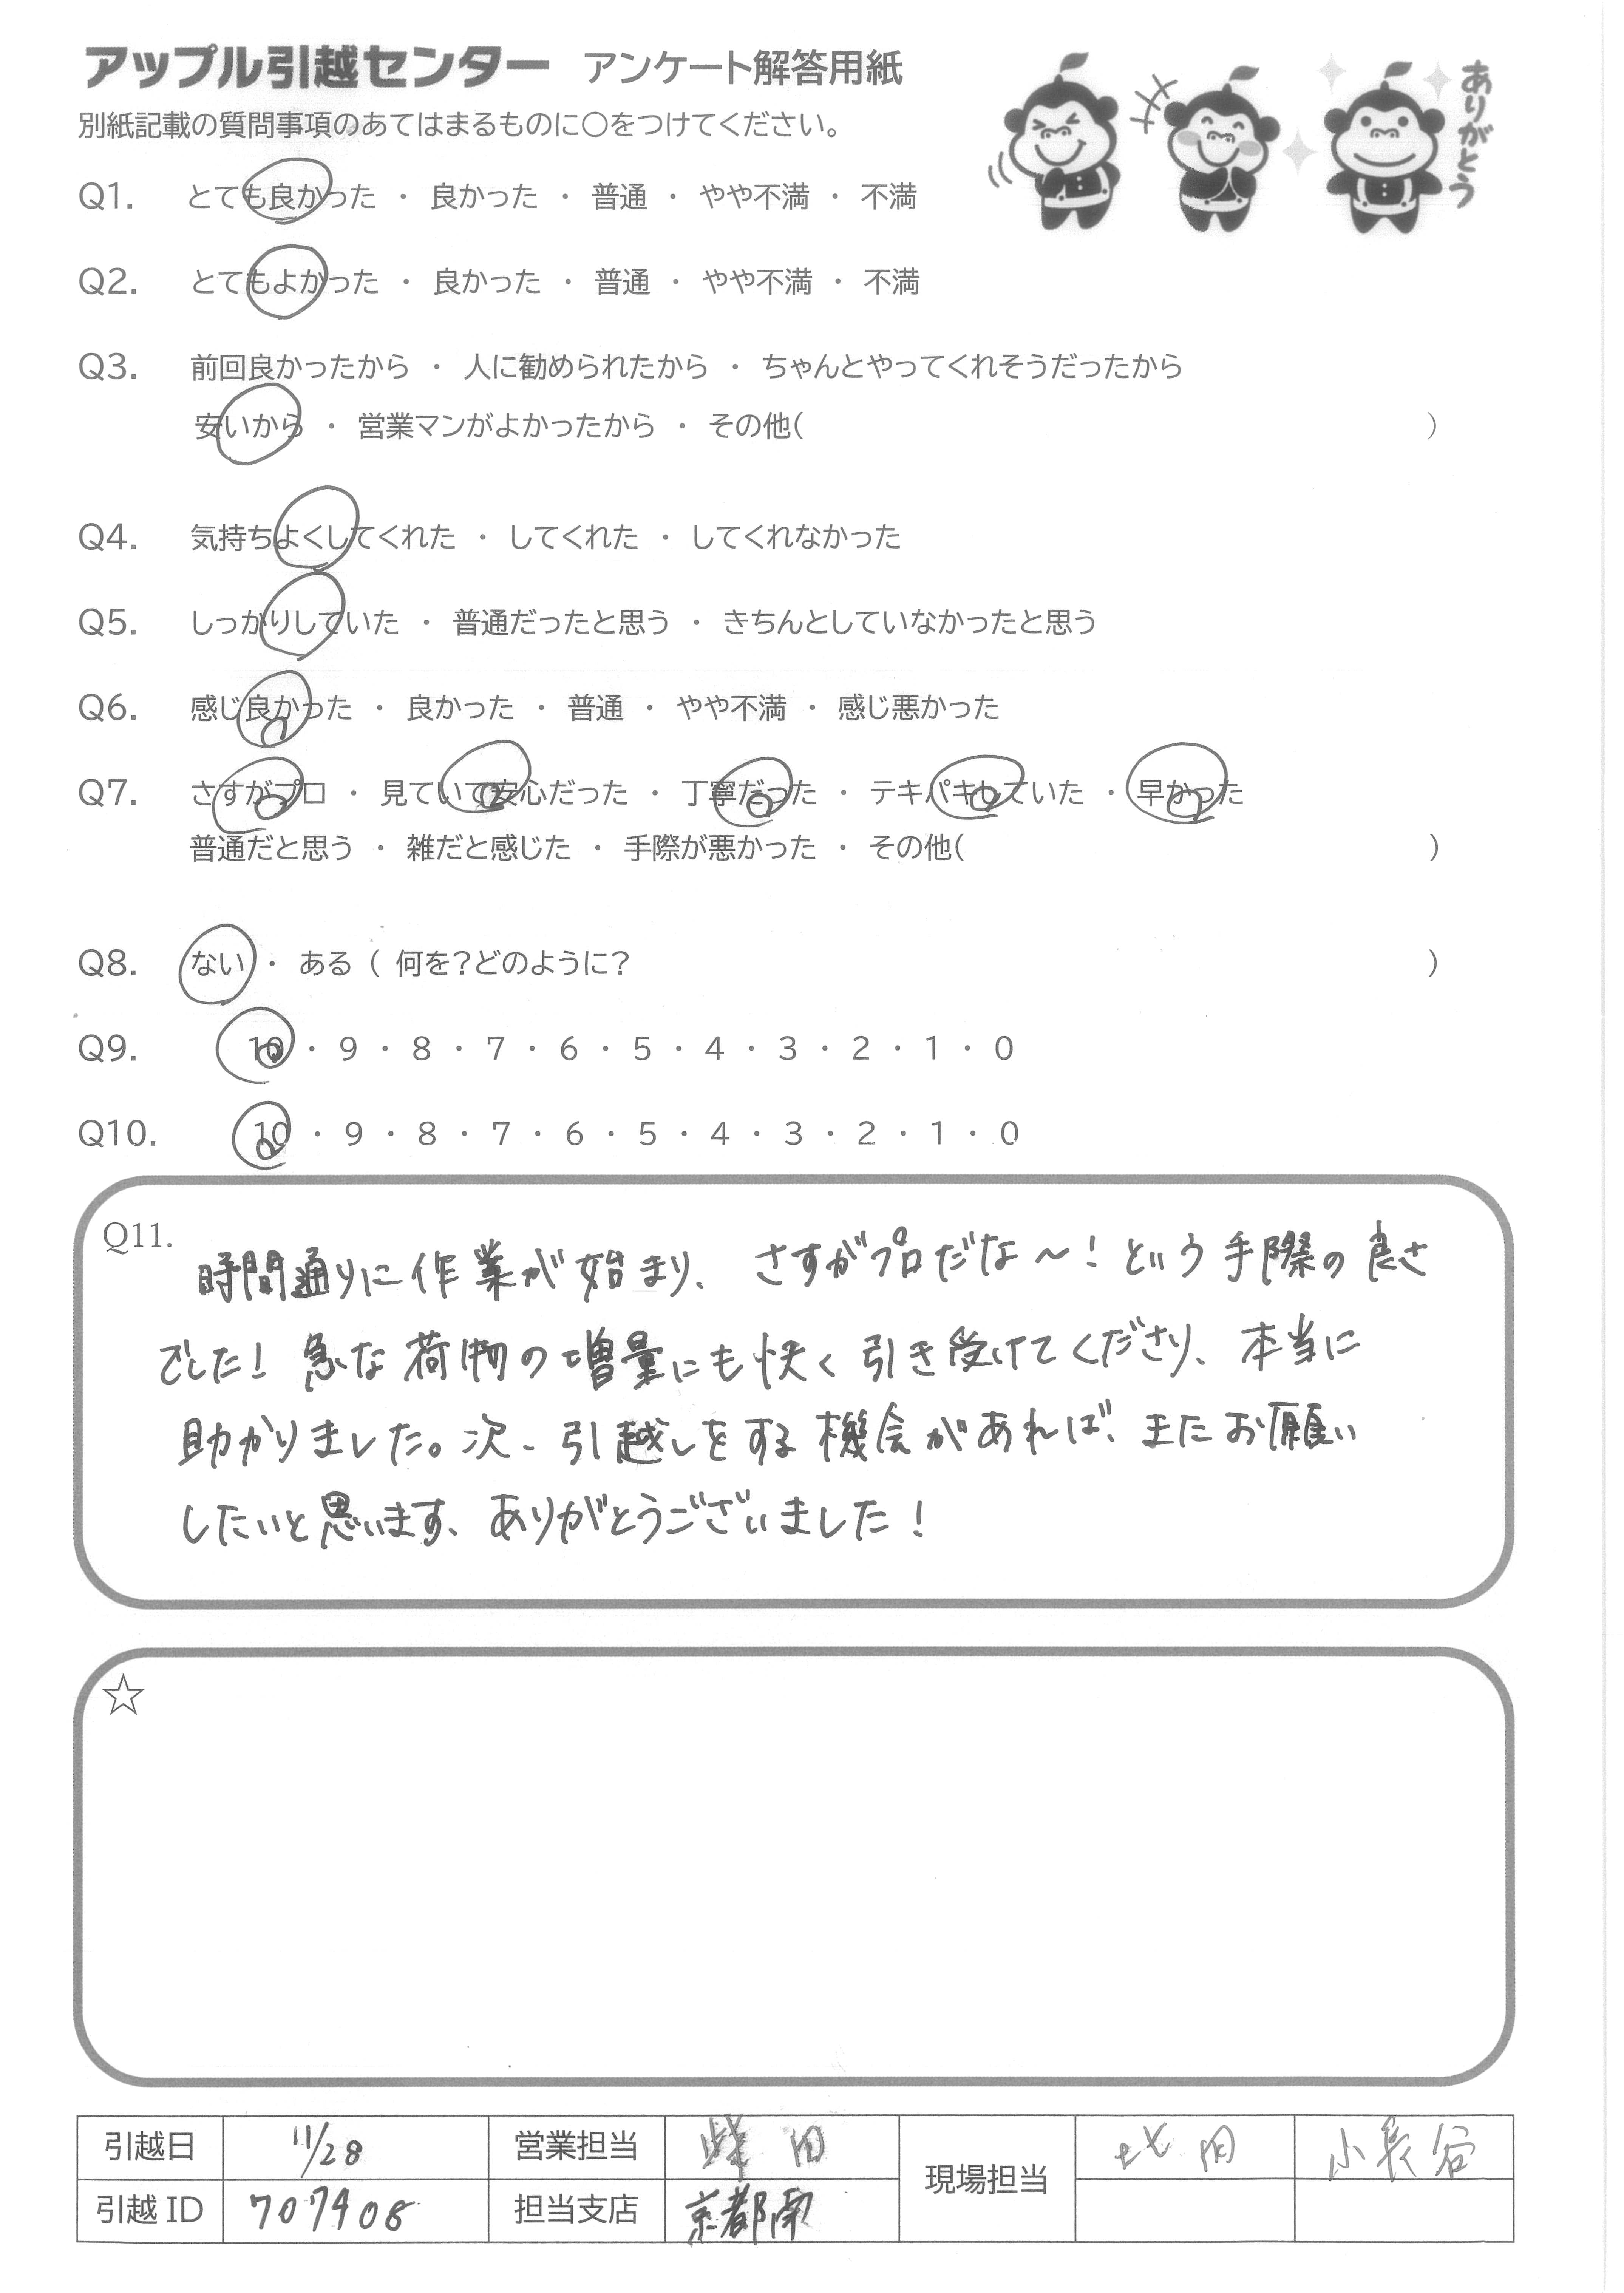 アップル引越センター アンケート解答用紙
ありがとう
別紙記載の質問事項のあてはまるものに○をつけてください。
Q1. とても良かった ・ 良かった ・ 普通 ・ やや不満 ・ 不満
Q2. とてもよかった ・ 良かった ・ 普通 ・ やや不満 ・ 不満
Q3. 前回良かったから ・ 人に勧められたから ・ ちゃんとやってくれそうだったから
安いから ・ 営業マンがよかったから ・ その他( )
Q4. 気持ちよくしてくれた ・ してくれた ・ してくれなかった
Q5. しっかりしていた ・ 普通だったと思う ・ きちんとしていなかったと思う
Q6. 感じ良かった ・ 良かった ・ 普通 ・ やや不満 ・ 感じ悪かった
Q7. さすがプロ ・ 見ていて安心だった ・ 丁寧だった ・ テキパキしていた ・ 早かった
普通だと思う ・ 雑だと感じた ・ 手際が悪かった ・ その他( )
Q8. ない ・ ある ( 何を?どのように? )
Q9. 10 ・ 9 ・ 8 ・ 7 ・ 6 ・ 5 ・ 4 ・ 3 ・ 2 ・ 1 ・ 0
Q10. 10 ・ 9 ・ 8 ・ 7 ・ 6 ・ 5 ・ 4 ・ 3 ・ 2 ・ 1 ・ 0
Q11. 時間通りに作業が始まり、さすがプロだな〜!という手際の良さ
でした!急な荷物の増量にも快く引き受けてくださり、本当に
助かりました。次、引越しをする機会があれば、またお願い
したいと思います、ありがとうございました!
☆
引越日 11/28 営業担当 柴田 現場担当 北田 小長谷
引越ID 707908 担当支店 京都南